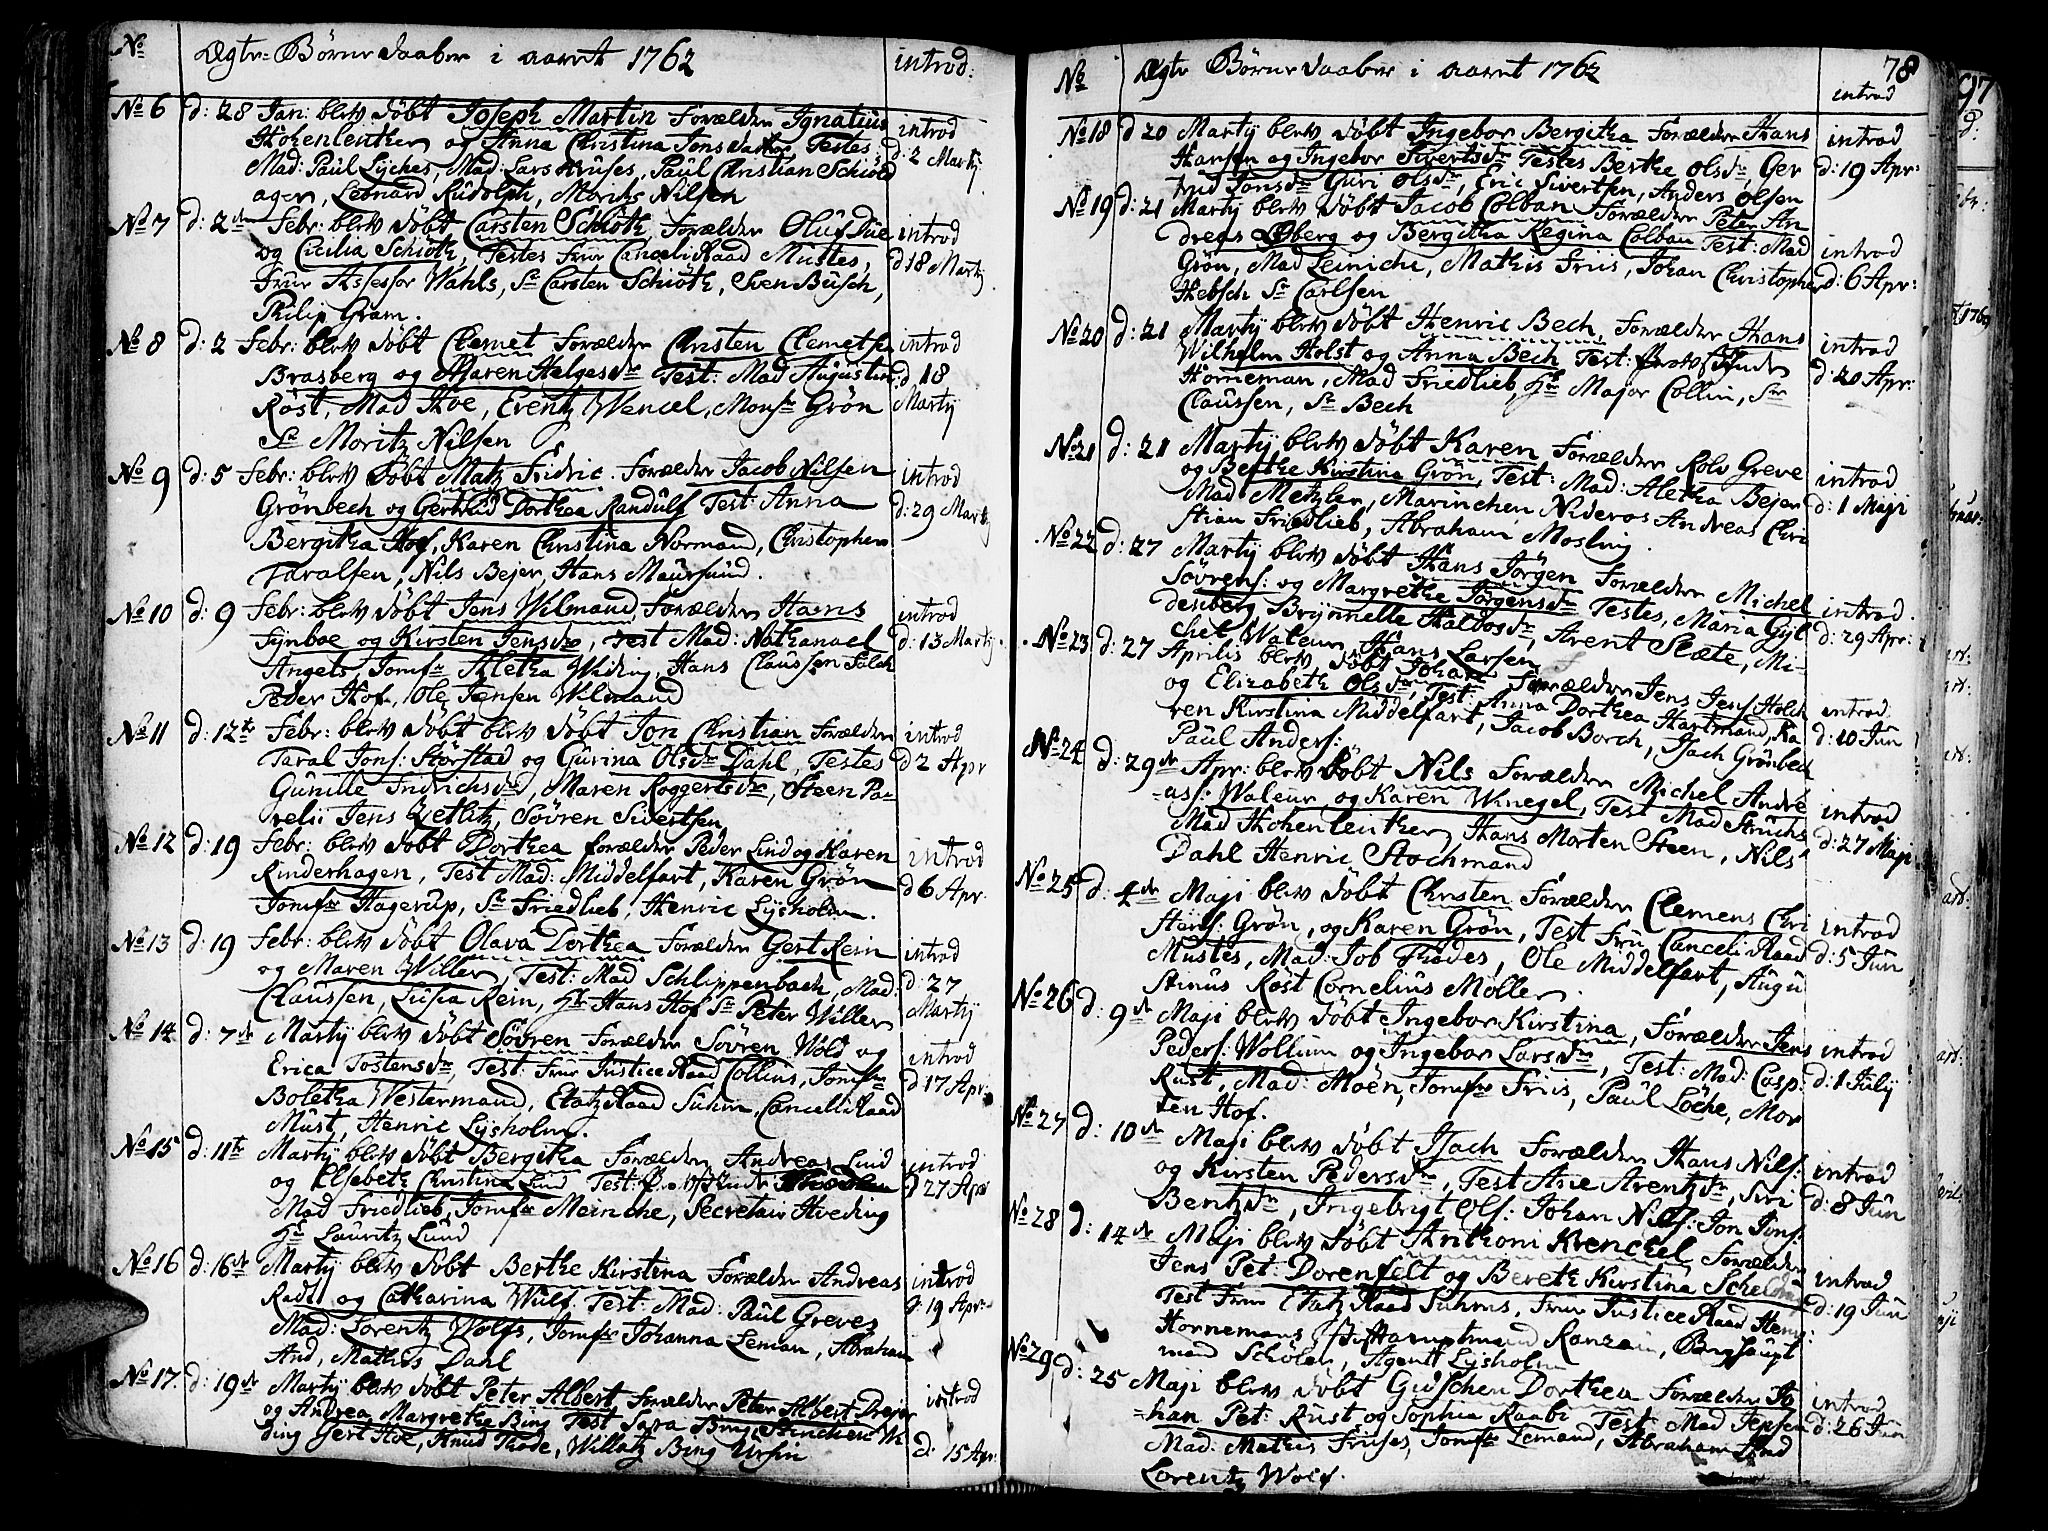 No
Ægte Børne Daaber i aaret 1762
introd:
No 6 d: 28 Jan: blev døbt Joseph Martin Forældre Ignatius
Hohenleuther og Anna Christina Jonsdatter, Testes:
Mad: Paul Lyches, Mad: Lars Kruses, Paul Christian Schiöld
ager, Leonard Rudolph, Morits Nilsen
introd
d: 2 Martij
No 7 d: 2den Febr: blev døbt Carsten Schiøtz, Forældre Oluf Due
og Cecilia Schiøtz, Testes Frue Cancelli Raad Mustes,
Frue Assessor Wahls, Sr Carsten Schiøtz, Sven Busch,
Philip Gram.
introd
d 18 Martij
No 8 d: 2 Febr: blev døbt Clemet Forældre Christen Clemetsen
Brasberg og Maren Helgesdr Test: Mad Augustin
Röst, Mad Hoe, Eventz Wencel, Monsr Grön
Sr Moritz Nilsen
introd
d 18
Martij
No 9 d: 5 Febr: blev døbt Matz Fridric. Forældre Jacob Nilsen
Grönbech og Gertrud Dorthea Randulf Test: Anna
Bergitha Hof, Karen Christina Normand, Christopher
Taralsen, Nils Bejer, Hans Maursund.
introd
d: 29 Martij
No 10 d: 9 Febr: blev døbt Jens Wilmand, Forældre Hans
Fynboe og Kirsten Jensdr, Test Mad: Nathanael
Angels, Jomfr Aletha Widing, Hans Claussen Falch
Peder Hof, Ole Jensen Wilmand
introd
d: 13 Martij
No 11 d: 12te Febr: blev døbt blev døbt Jon Christian Forældre
Taral Jons: Störstad og Gurina Olsdr Dahl, Testes
Gunille Fridrichsd, Maren Roggertsdr, Steen Pa-
relii Jens Zetlitz, Sövren Sivertsen
introd
d 2 Apr
No 12 d: 19 Febr: blev døbt Dorthea forældre Peder Lind og Karen
Rinderhagen, Test Mad: Middelfart, Karen Grön
Jomfr Hagerup, Sr Friedlieb, Henric Lysholm.
introd
d 6 Apr.
No 13 d: 19 Febr: blev døbt Olava Dorthea Forældre Gert Rein
og Maren Willer, Test: Mad Schlippenbach, Mad:
Claussen, Lusia Rein, Hr Hans Hof Sr Peter Willer
introd
d: 27
Martij
No 14 d: 7de Martij blev døbt Sövren Forældre Sövren Wold og
Erica Tostensdr, Test: Frue Justice Raad Collins, Jomfr
Boletha Westermand, Etatz Raad Suhm, Cancelli Raad
Must, Henric Lysholm.
introd
d 17 Apr
No 15 d: 11te Martij blev døbt Bergitha Forældre Andreas Lind
og Elsebeth Christina Lund Test:
Mad Friedlieb, Jomfr Meinche, Secretair Hveding
Hr Lauritz Lund
introd
d 27 Apr
No 16 d: 16de Martij blev døbt Berthe Kirstina Forældre Andreas
Radt og Catharina Wulf Test: Mad: Paul Greves
Mad: Lorentz Wolfs, Jomfr Johanna Leman, Abraham
And, Mathis Dahl
introd
d: 19 Apr:
No 17. d: 19de Martij blev døbt Peter Albert Forældre Peter Albert Drejer
og Andrea Margretha Bing Test Sara Bing, Stinchen W
ding Gert Hoe, Knud Thode, Willatz Bing Ursin
introd
d: 15 Apr:
No
Ægte Børne Daaber i aaret 1762
78
introd
No 18 d 20 Martij blev døbt Ingebor Bergitha Forældre Hans
Hansen og Ingebor Sivertsdr Testes Berthe Olsdr, Ger
trud Jonsdr Guri Olsdr, Eric Sivertsen, Anders Olsen
introd
d: 19 Apr:
No 19 d: 21 Martij blev døbt Jacob Colban Forældre Peter An
dreas Öberg og Bergitha Regina Colban Test: Mad
Grön, Mad Leiniche, Mathis Friis, Johan Christopher
Hebsch Sr Carlsen
introd
d: 6 Apr:
No 20 d: 21 Martij blev døbt Henric Bech, Forældre Hans
Wilhelm Holst og Anna Bech Test:
Horneman, Mad Friedlieb, Hr Major Collin, Sr
Claussen, Sr Bech
introd
d: 20 Apr:
No 21 d: 21 Martij blev døbt Karen Forældre Rolv Greve
og Berthe Kirstina Grön, Test: Mad: Aletha Bejer
Mad Metzler, Marinchen Nideros Andreas Chri
stian Friedlieb, Abraham Mosling.
introd
d: 1 Maji
No 22 d: 27 Martij blev døbt Hans Jörgen Forældre Michel
Sövrens: og Margrethe Jörgensdr Testes, Maria Gyl
desberg Brynnelle Haldosdr, Arent Slæte, Mi-
chel Waleur, Hans Larsen
introd
d: 29 Apr:
No 23 d: 27 Aprilis blev døbt Johan Forældre Jens Jens: Holch
og Elizabeth Olsdr, Test: Anna Dorthea Hartmand, Ka
ren Kirstina Middelfart, Jacob Borch, Isach Grönbech
Paul Anders:
introd
d: 10 Jun
No 24 d: 29de Apr: blev døbt Nils Forældre Michel Andre
as: Waleur og Karen Winegel, Test Mad Struchs
Mad Hohenleuther Hans Morten Steen, Nils
Dahl Henric Stochmand
introd
d: 27 Maji
No 25 d: 4de Maji blev døbt Christen Forældre Clemens Chri
stens: Grön, og Karen Grön, Test Fru Cancelli Raad
Mustes, Mad: Job Thodes, Ole Middelfart, Augu
stinus Röst Cornelius Möller.
introd
d: 5 Jun
No 26 d: 9de Maji blev døbt Ingebor Kirstina, Forældre Jens
Peders: Wollum og Ingebor Larsdr, Test: Mad: Casp:
Rust, Mad: Möen, Jomfr Friis, Paul Löche, Mor
ten Hof.
introd
d: 1 July
No 27 d: 10de Maji blev døbt Isach Forældre Hans Nils:
og Kirsten Pedersdr, Test Ane Arentzdr, Siri
Bentzdr, Ingebrigt Ols: Johan Nils: Jon Jons:
introd
d: 8 Jun
No 28 d: 14de Maji blev døbt Anthoni Krenchel Forældre
Jens Pet: Dorenfelt og Bereth Kirstina Scheldrup
Test Frue Etatz Raad Suhms, Frue Justice Raad Hem:
Hornemans Hr Hauptmand Ranzau, Berghaupt
mand Schölen, Agent Lysholm
introd
d: 19 Jun
No 29 d: 25 Maji blev døbt Gidschen Dorthea Forældre Jo
han Pet: Rust og Sophia Raabe Test: Mad Jepsen
Mad: Mathis Friises, Jomfr Lemand, Abraham And
Lorentz Wolf.
introd
d: 26 Jun
97